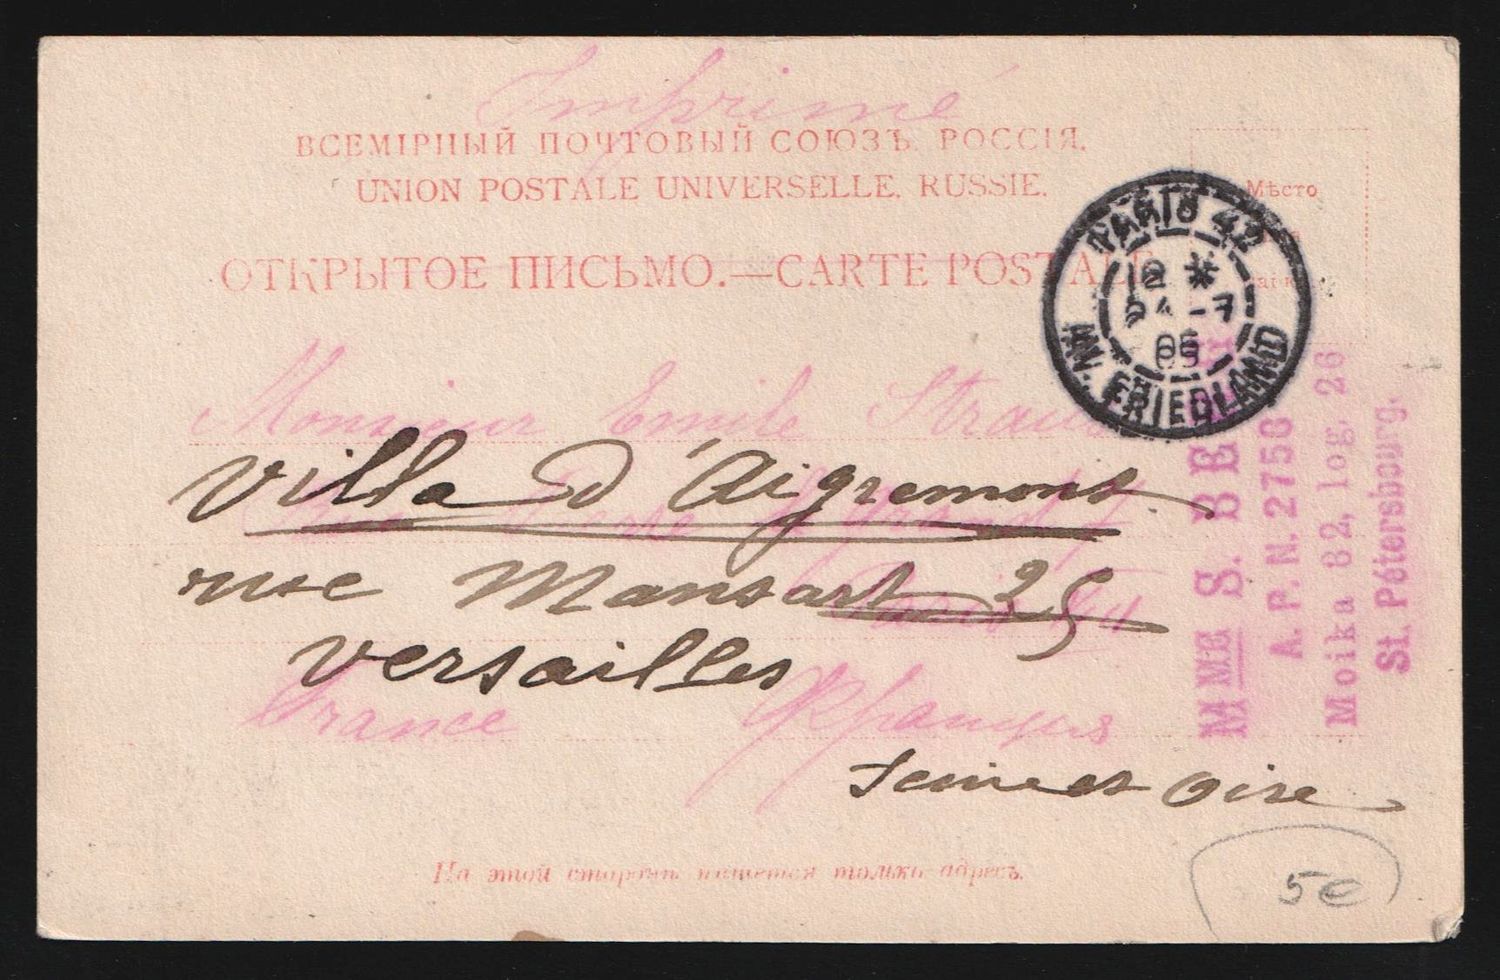 Imprimé
ВСЕМІРНЫЙ ПОЧТОВЫЙ СОЮЗЪ. РОССІЯ.
UNION POSTALE UNIVERSELLE. RUSSIE.
Мѣсто
ОТКРЫТОЕ ПИСЬМО.—CARTE POSTALE
PARIS 42
12 *
24 - 7
05
AV. FRIEDLAND
Monsieur Emile Straus
Villa d'Aigremont
rue Mansart 25
Versailles
France
Seine et Oise
MME S.
A. P. N. 2756
Moika 82, log. 26
St. Pétersbourg.
На этой сторонѣ пишется только адресъ.
5€